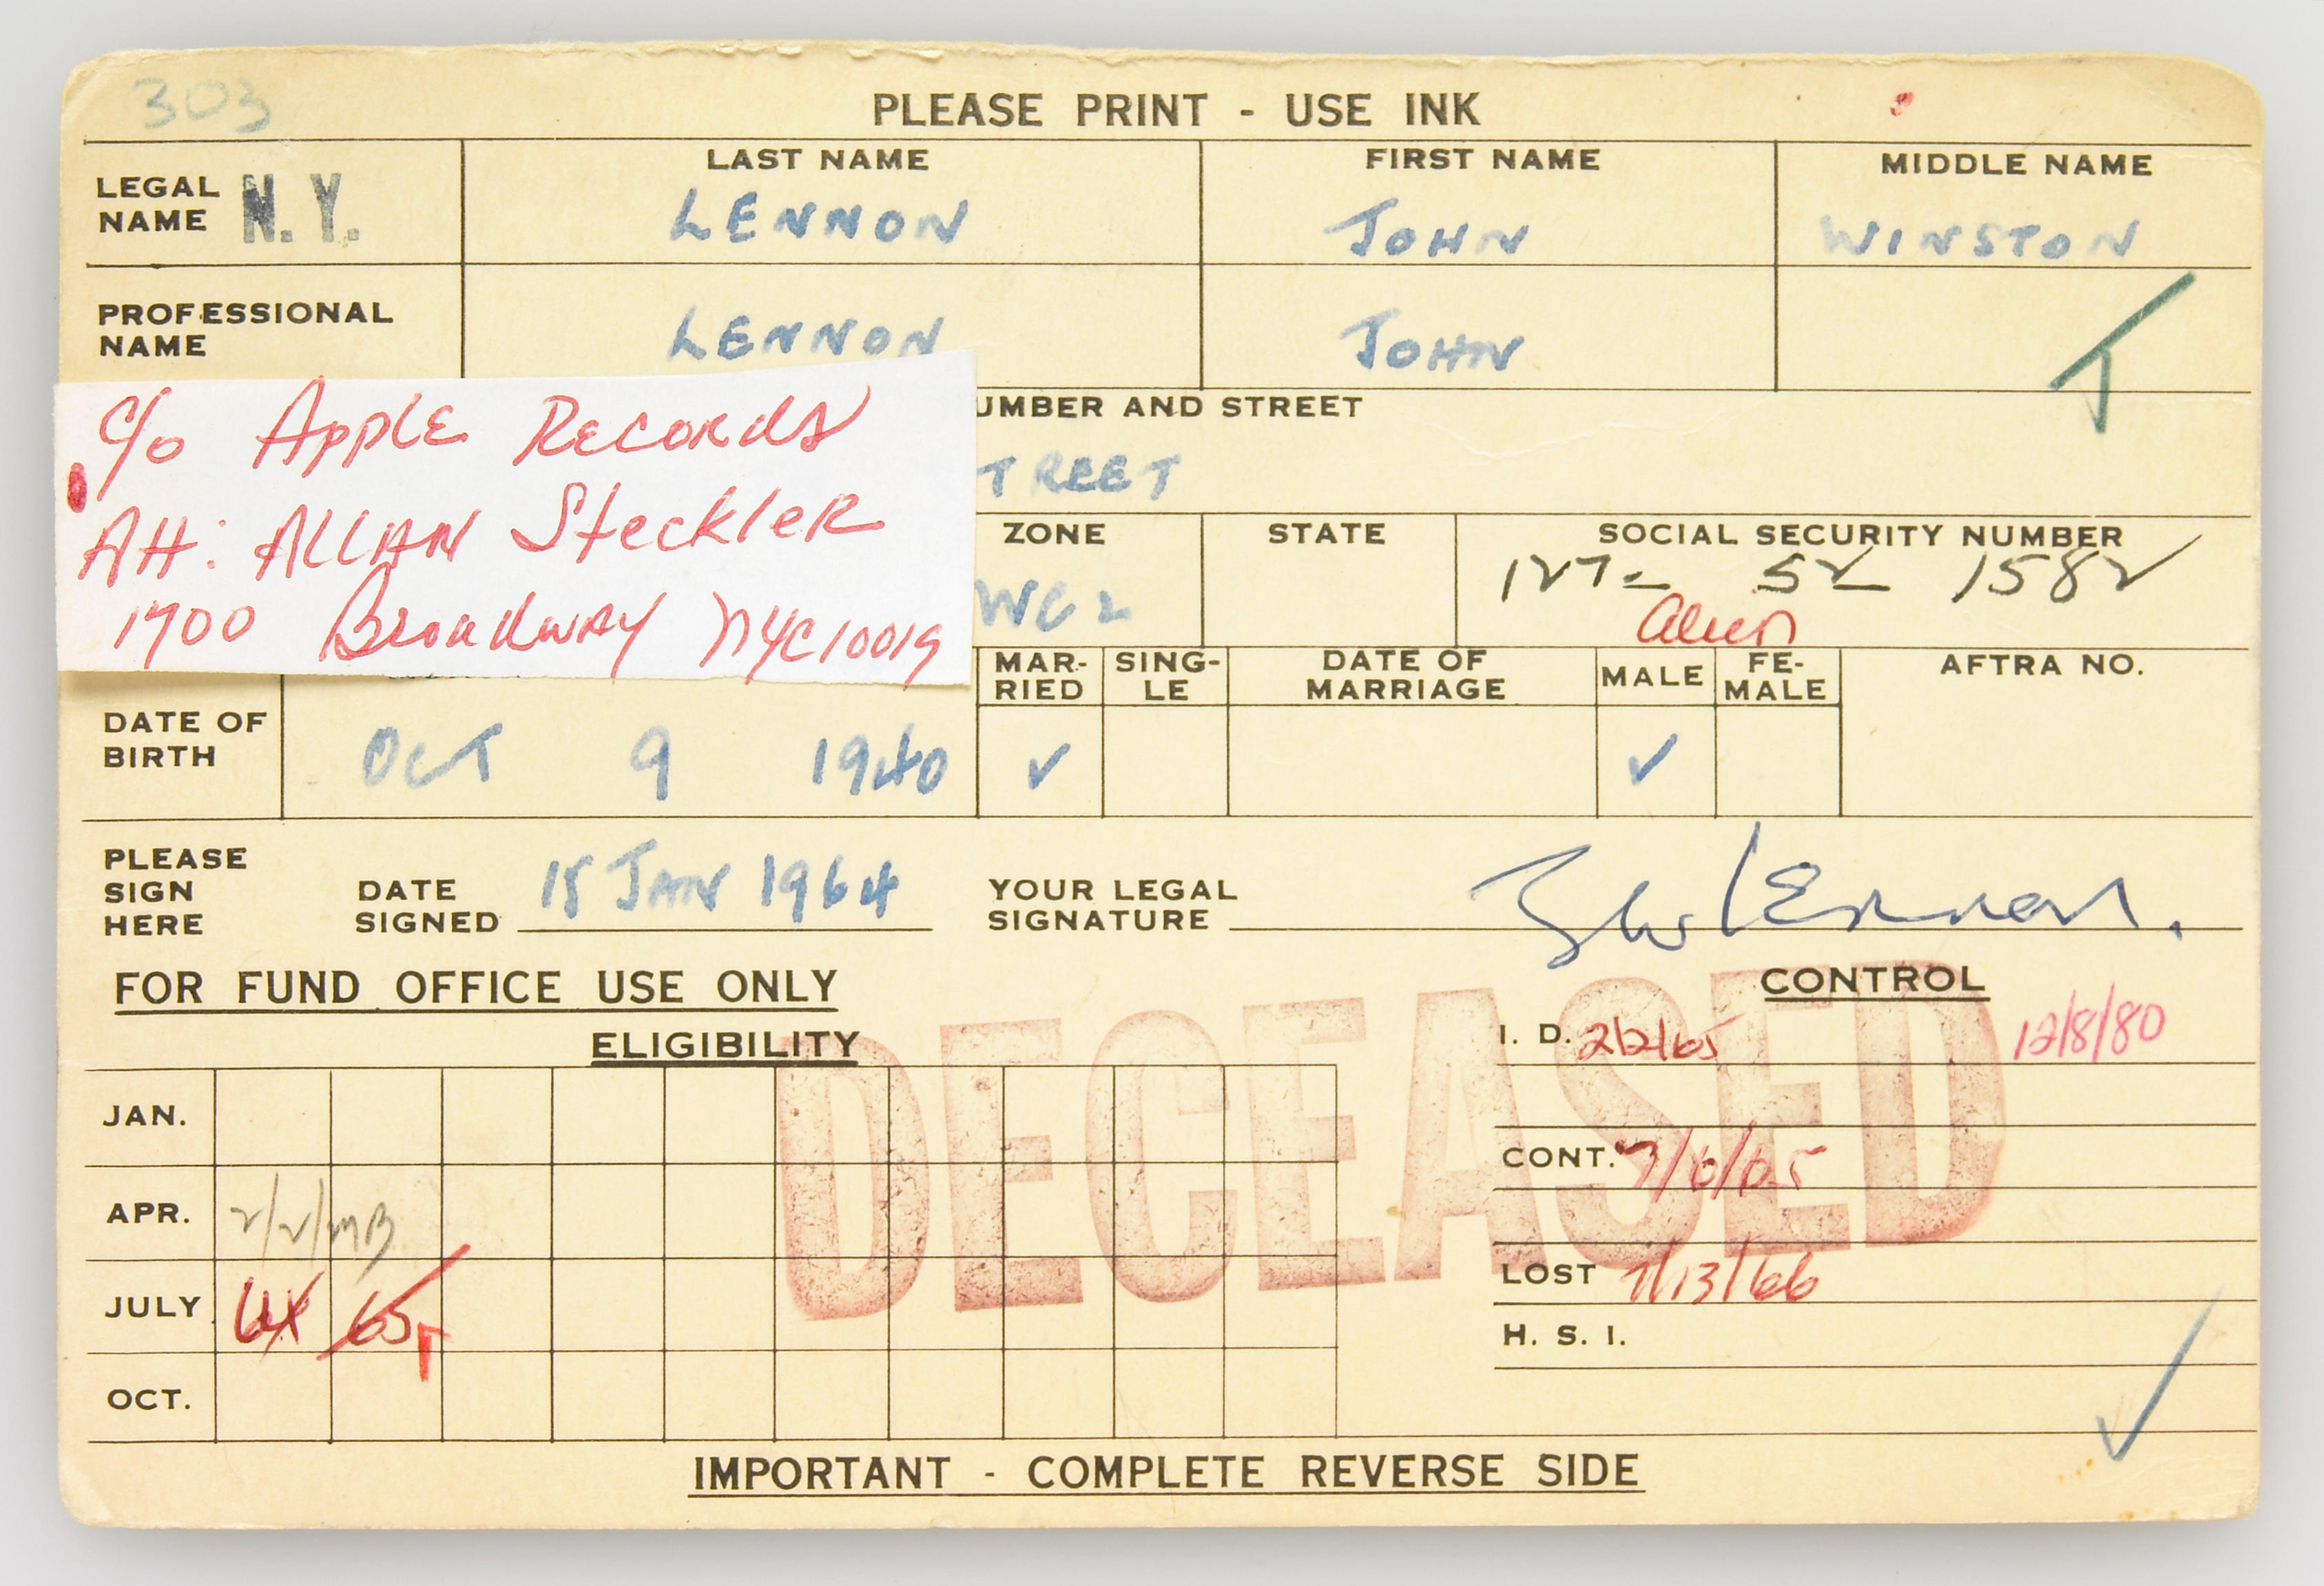 303
PLEASE PRINT - USE INK
LEGAL NAME N.Y. LAST NAME LENNON FIRST NAME JOHN MIDDLE NAME WINSTON
PROFESSIONAL NAME LENNON JOHN
c/o Apple Records
Att: Allan Steckler
1700 Broadway NYC 10019
UMBER AND STREET
TREET
ZONE STATE SOCIAL SECURITY NUMBER
WC2 127- 52 1582
alien
DATE OF BIRTH OCT 9 1940
MARRIED ✓ SINGLE DATE OF MARRIAGE MALE ✓ FEMALE AFTRA NO.
PLEASE SIGN HERE DATE SIGNED 15 JAN 1964 YOUR LEGAL SIGNATURE John Lennon.
FOR FUND OFFICE USE ONLY CONTROL
ELIGIBILITY
DECEASED
I. D. 2/2/65 12/8/80
JAN.
CONT. 7/6/65
APR.
LOST 7/13/66
JULY 64 65
H. S. I.
OCT.
IMPORTANT - COMPLETE REVERSE SIDE